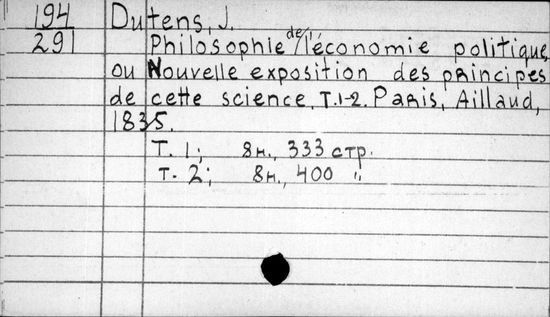 194 Dutens, J.
291 Philosophie de l'économie politique
ou Nouvelle exposition des principes
de cette science. T.1-2. Paris, Aillaud,
1835.
T. 1; 8н., 333 стр.
T. 2; 8н., 400 "